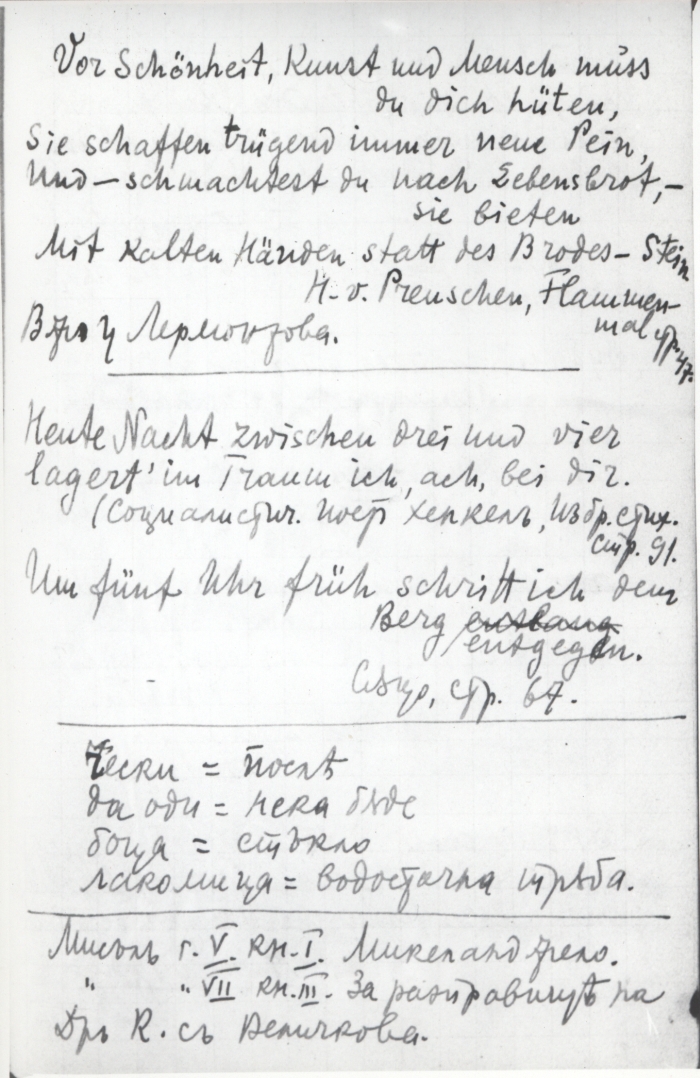 Vor Schönheit, Kunst und Mensch muss
du dich hüten,
Sie schaffen trügend immer neue Pein,
Und – schmachtest du nach Lebensbrot, –
sie bieten
Mit kalten Händen statt des Brodes – Stein
H. v. Preuschen, Flammen-
mal стр. 47.
у Лермонтова.
Heute Nacht zwischen drei und vier
lagert' im Traum ich, ach, bei dir.
(Социалистич. поетъ Хенкелъ, Избр. стих.
стр. 91.
Um fünf Uhr früh schritt ich dem
Berg entlang
entgegen.
стр. 67.
= послѣ
да оди = нека бѫде
боца = стъкло
лакомица = водосточна трѫба.
Мисъль г. V. кн. I. Микеланджело.
" " VII кн. III. За разправиитѣ на
Дръ К. съ Величкова.